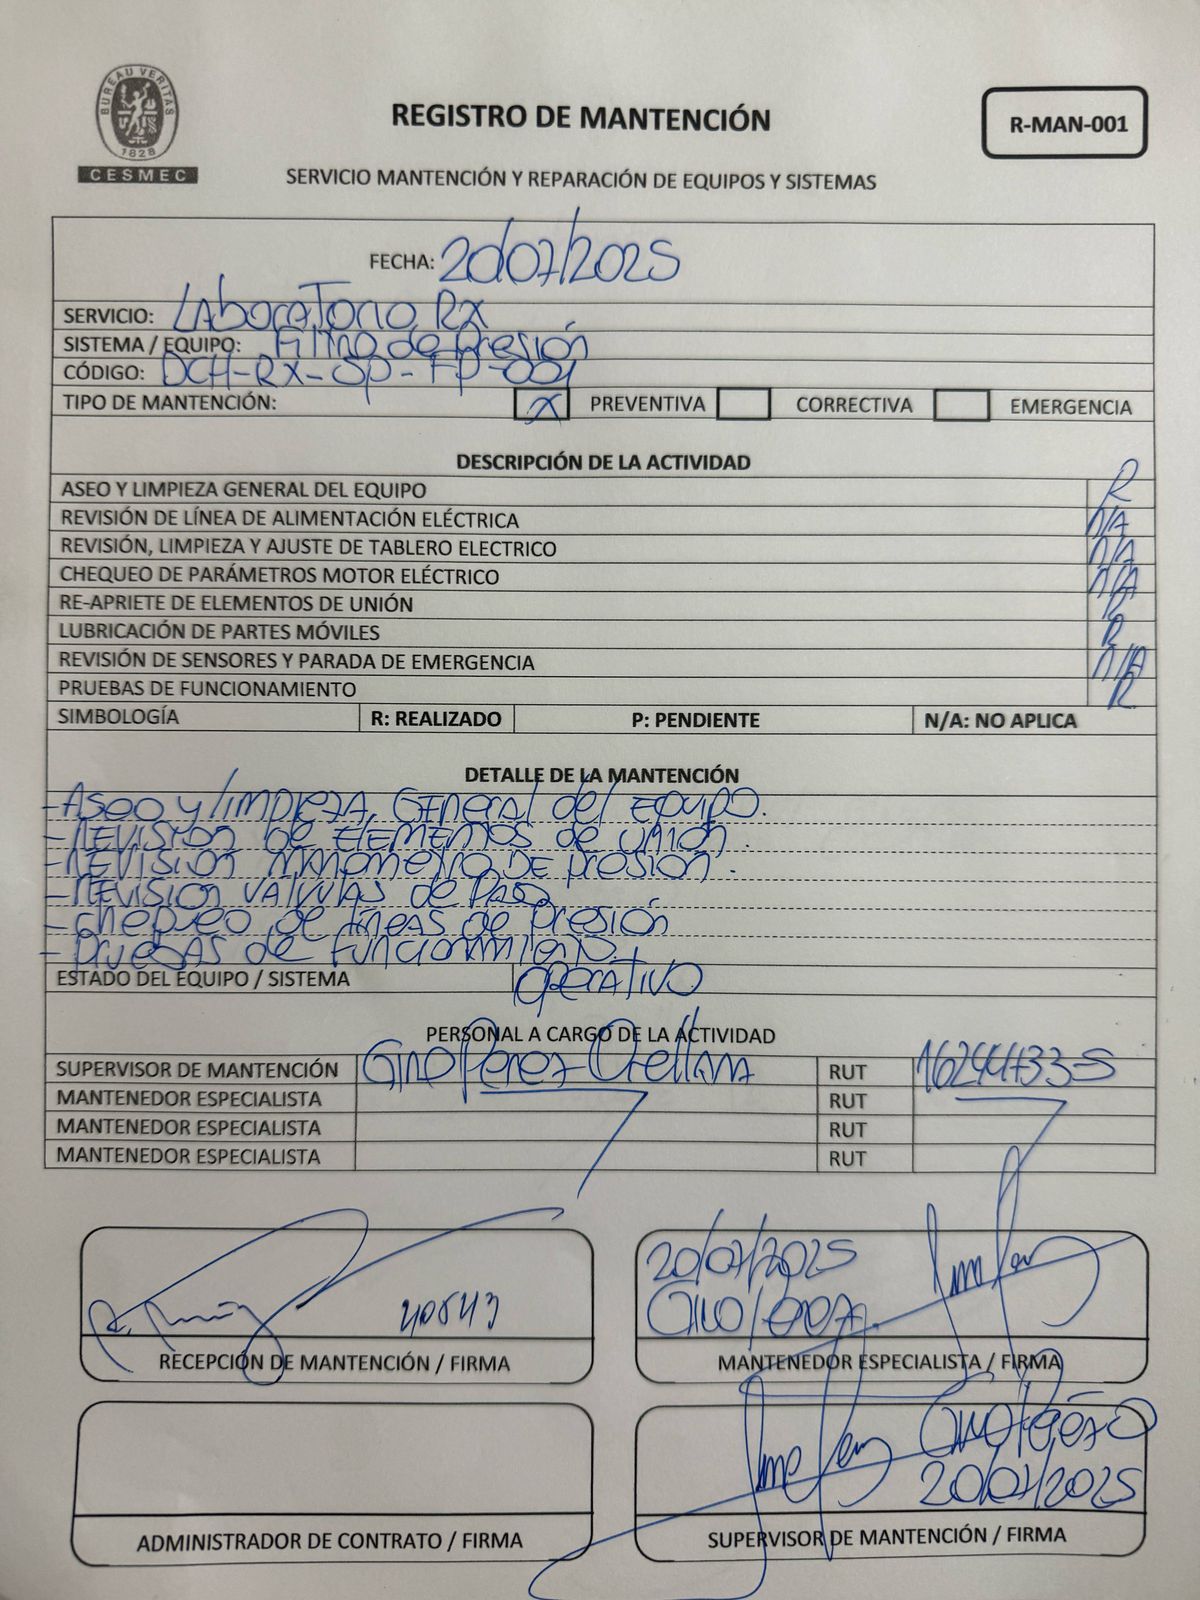 BUREAU VERITAS
1828
CESMEC
REGISTRO DE MANTENCIÓN
R-MAN-001
SERVICIO MANTENCIÓN Y REPARACIÓN DE EQUIPOS Y SISTEMAS
FECHA: 20/07/2025
SERVICIO: LAboraTorio RX
SISTEMA / EQUIPO: Filtro de Presión
CÓDIGO: DCH-RX-OP-FP-001
TIPO DE MANTENCIÓN: X PREVENTIVA CORRECTIVA EMERGENCIA
DESCRIPCIÓN DE LA ACTIVIDAD
ASEO Y LIMPIEZA GENERAL DEL EQUIPO R
REVISIÓN DE LÍNEA DE ALIMENTACIÓN ELÉCTRICA N/A
REVISIÓN, LIMPIEZA Y AJUSTE DE TABLERO ELECTRICO N/A
CHEQUEO DE PARÁMETROS MOTOR ELÉCTRICO N/A
RE-APRIETE DE ELEMENTOS DE UNIÓN R
LUBRICACIÓN DE PARTES MÓVILES R
REVISIÓN DE SENSORES Y PARADA DE EMERGENCIA N/A
PRUEBAS DE FUNCIONAMIENTO R
SIMBOLOGÍA R: REALIZADO P: PENDIENTE N/A: NO APLICA
DETALLE DE LA MANTENCIÓN
- ASEO y LIMPIEZA General del EQUIPO.
- REVISIÓN DE ELEMENTOS de UNIÓN.
- REVISIÓN MANOMETRO DE presión.
- REVISIÓN VALVULAS de PASO
- chequeo de líneas de presión
- PRUEBAS de funcionamiento.
ESTADO DEL EQUIPO / SISTEMA OPERATIVO
PERSONAL A CARGO DE LA ACTIVIDAD
SUPERVISOR DE MANTENCIÓN Gino Perez Orellana RUT 16244733-5
MANTENEDOR ESPECIALISTA RUT
MANTENEDOR ESPECIALISTA RUT
MANTENEDOR ESPECIALISTA RUT
20/07/2025
40543
RECEPCIÓN DE MANTENCIÓN / FIRMA
MANTENEDOR ESPECIALISTA / FIRMA
Gino Pérez O
20/07/2025
ADMINISTRADOR DE CONTRATO / FIRMA
SUPERVISOR DE MANTENCIÓN / FIRMA